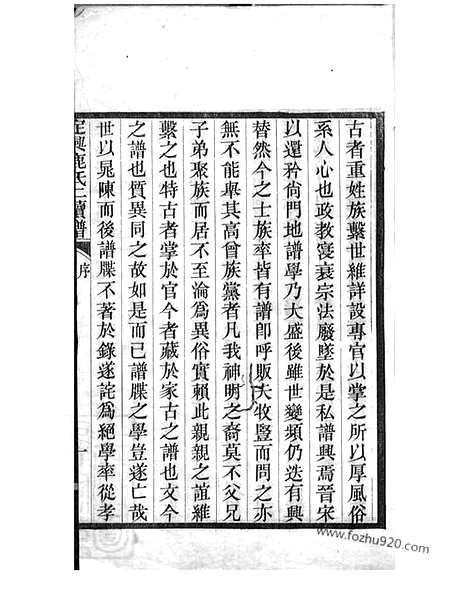 古者重姓族繫世維詳設專官以掌之所以厚風俗
系人心也政教寖衰宗法廢墜於是私譜興焉晉宋
以還矜尙門地譜學乃大盛後雖世變頻仍迭有興
替然今之士族率皆有譜卽呼販夫牧豎而問之亦
無不能舉其高曾族黨者凡我神明之裔莫不父兄
子弟聚族而居不至淪爲異俗實賴此親親之誼維
繫之也特古者掌於官今者藏於家古之譜也文今
之譜也質異同之故如是而已譜牒之學豈遂亡哉
世以晁陳而後譜牒不著於錄遂詫爲絕學率從孝
定興鹿氏二續譜
序
一
www.fozhu920.com